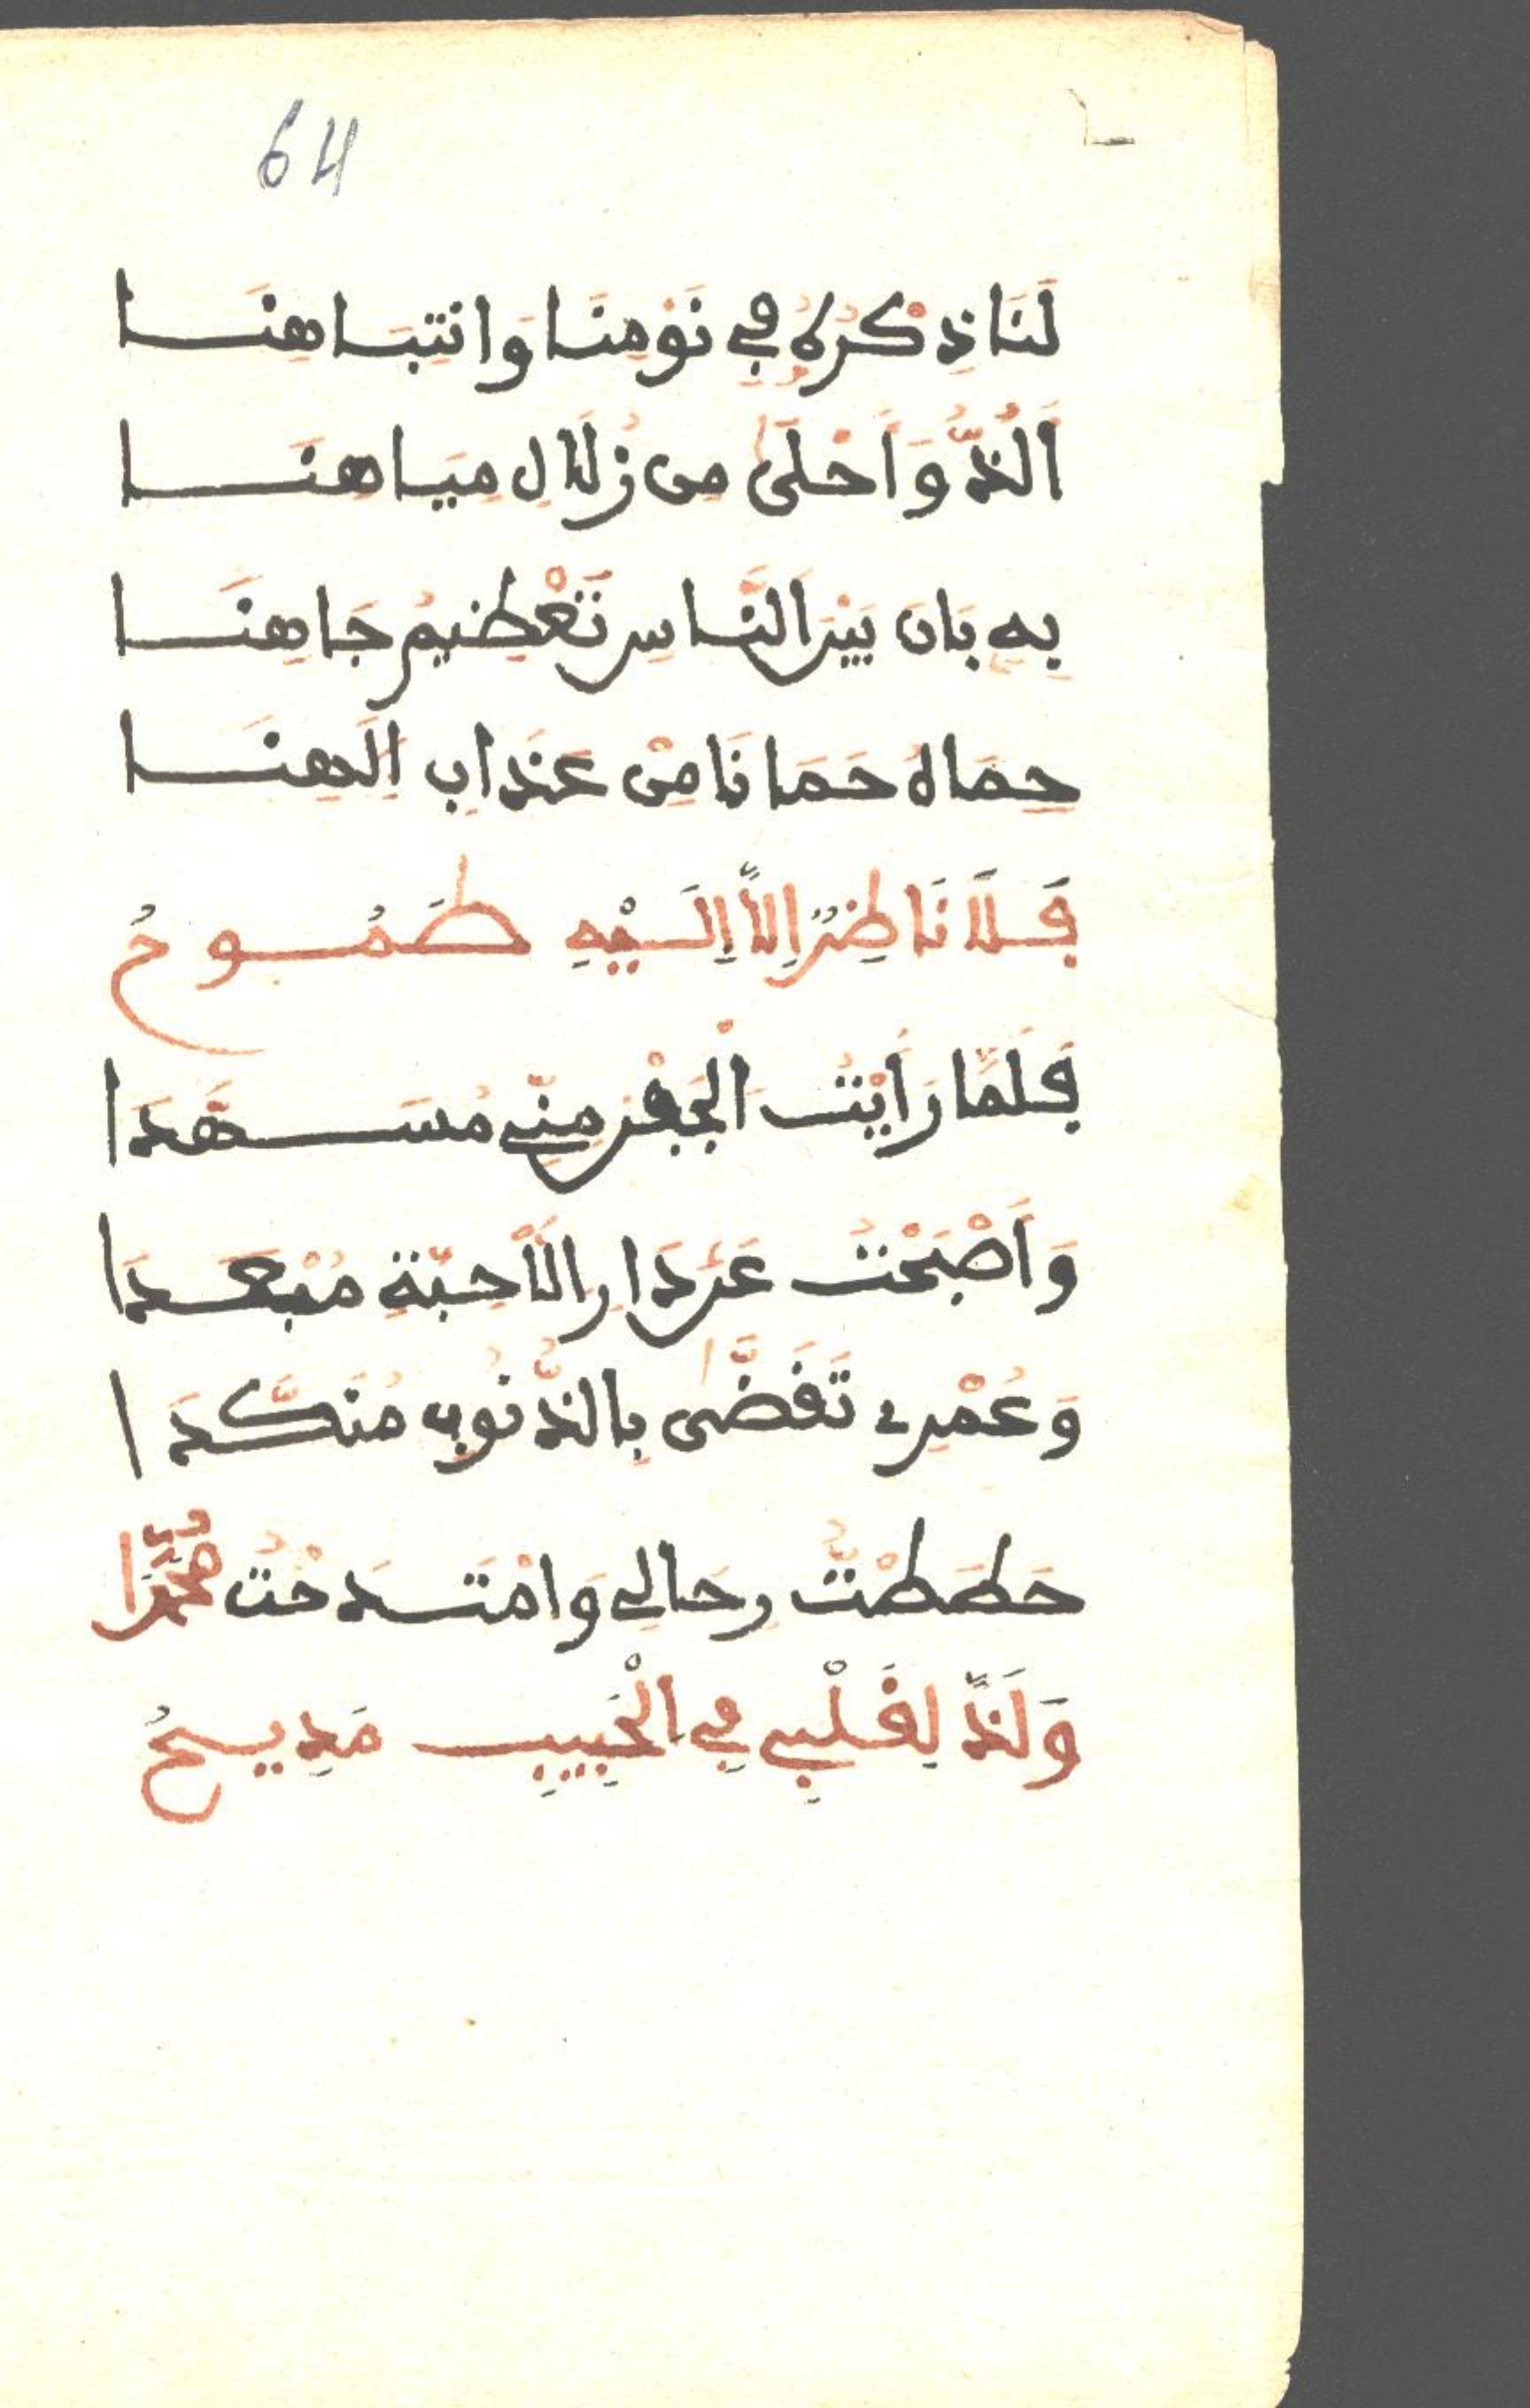 64
لَنَا ذِكْرُهُ فِي نَوْمِنَا وَانْتِبَاهِنَا
أَلَذُّ وَأَحْلَى مِن زُلَالِ مِيَاهِنَا
بِهِ بَانَ بَيْنَ النَّاسِ تَعْظِيمُ جَاهِنَا
حِمَاهُ حَمَانَا مِنْ عَذَابِ إِلَهِنَا
فَلَا نَاظِرٌ إِلَّا إِلَيْهِ طَمُوحُ
فَلَمَّا رَأَيْتُ الْجَفْنَ مِنِّي مُسَهَّدَا
وَأَصْبَحْتُ عَنْ دَارِ الْأَحِبَّةِ مُبْعَدَا
وَعُمْرِي تَقَضَّى بِالذُّنُوبِ مُنَكَّدَا
حَطَطْتُّ رِحَالِي وَامْتَدَحْتُ مُحَمَّدًا
وَلَذَّ لِقَلْبِي فِي الْحَبِيبِ مَدِيحُ